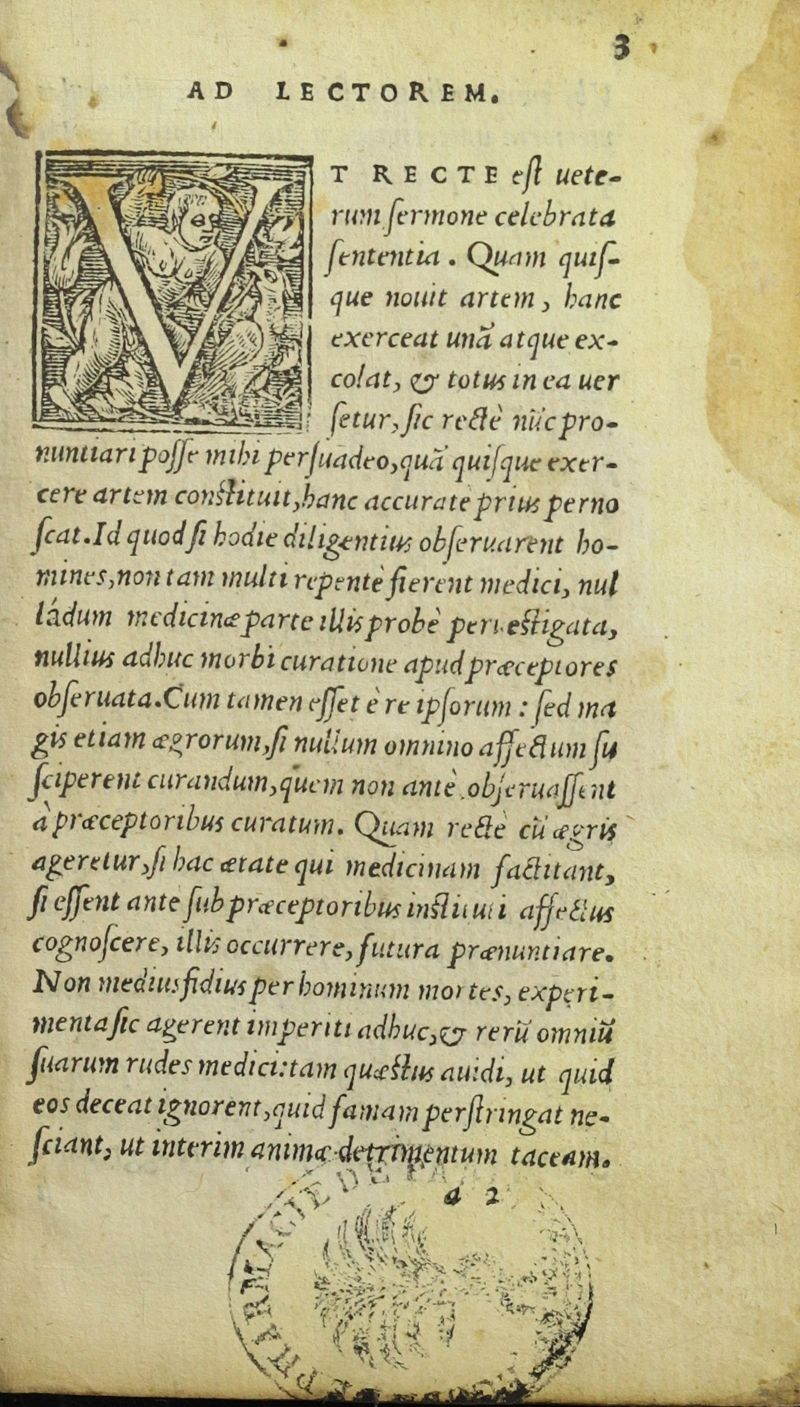 3
AD LECTOREM.
VT RECTE eſt uete-
rum ſermone celebrata
ſententia. Quam quiſ-
que nouit artem, hanc
exerceat unà atque ex-
colat, & totus in ea uer
ſetur, ſic rectè nūc pro-
nuntiari poſſe mihi perſuadeo, quā quiſque exer-
cere artem conſtituit, hanc accurate prius perno
ſcat. Id quod ſi hodie diligentius obſeruarent ho-
mines, non tam multi repentè fierent medici, nul
lâdum medicinæ parte illis probè perueſtigata,
nullius adhuc morbi curatione apud præceptores
obſeruata. Cum tamen eſſet è re ipſorum: ſed ma
gis etiam ægrorum, ſi nullum omnino affectum ſu
ſciperent curandum, quem non antè obſeruaſſent
à præceptoribus curatum. Quam rectè cū ægris
ageretur, ſi hac ætate qui medicinam factitant,
ſi eſſent ante ſub præceptoribus inſtituti affectus
cognoſcere, illis occurrere, futura prænuntiare.
Non mediusfidius per hominum mortes, experi-
menta ſic agerent imperiti adhuc, & rerū omniū
ſuarum rudes medici: tam quæſtus auidi, ut quid
eos deceat ignorent, quid famam perſtringat ne-
ſciant, ut interim animæ detrimentum taceam.
a 2
PHARMACIE DE